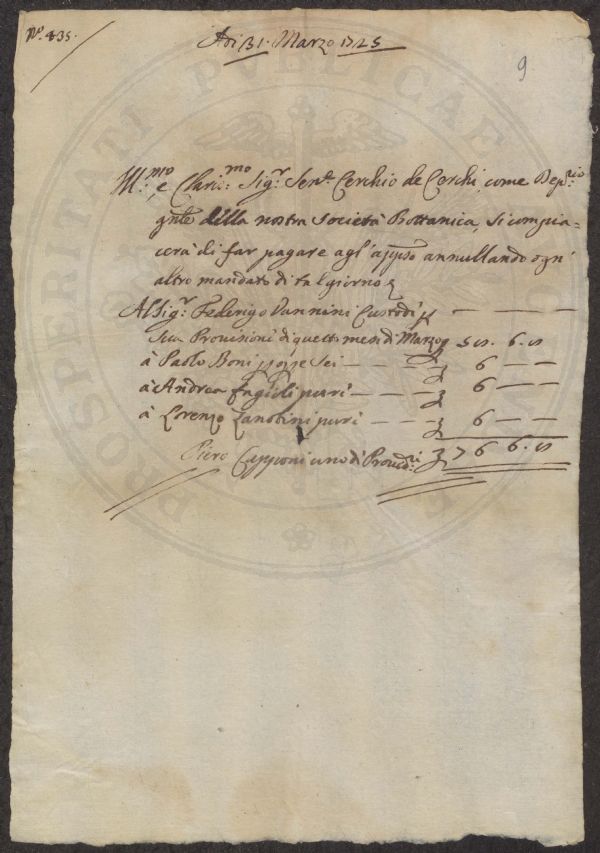 N.º 835.
Adi 31. Marzo 1725
9
M.mo e Claris.mo Sig.r Sen.re Cerchio de Cerchi, come Dep.rio
gnle della nostra Società Bottanica, si compia=
cerà di far pagare agl' appiso annullando ogni
altro mandato di tal giorno
Al Sig.r Federigo Vannini Custode p — — —
sua Provisione di questo mese di Marzo 6. —
à Paolo Boni p opre sei — — — 6 — —
à Andrea Fagioli pari — — — 6 — —
à Lorenzo Zanobini pari — — — 6 — —
Piero Capponi uno di Provdi.ri 76 6.
PROSPERITATI PUBLICAE